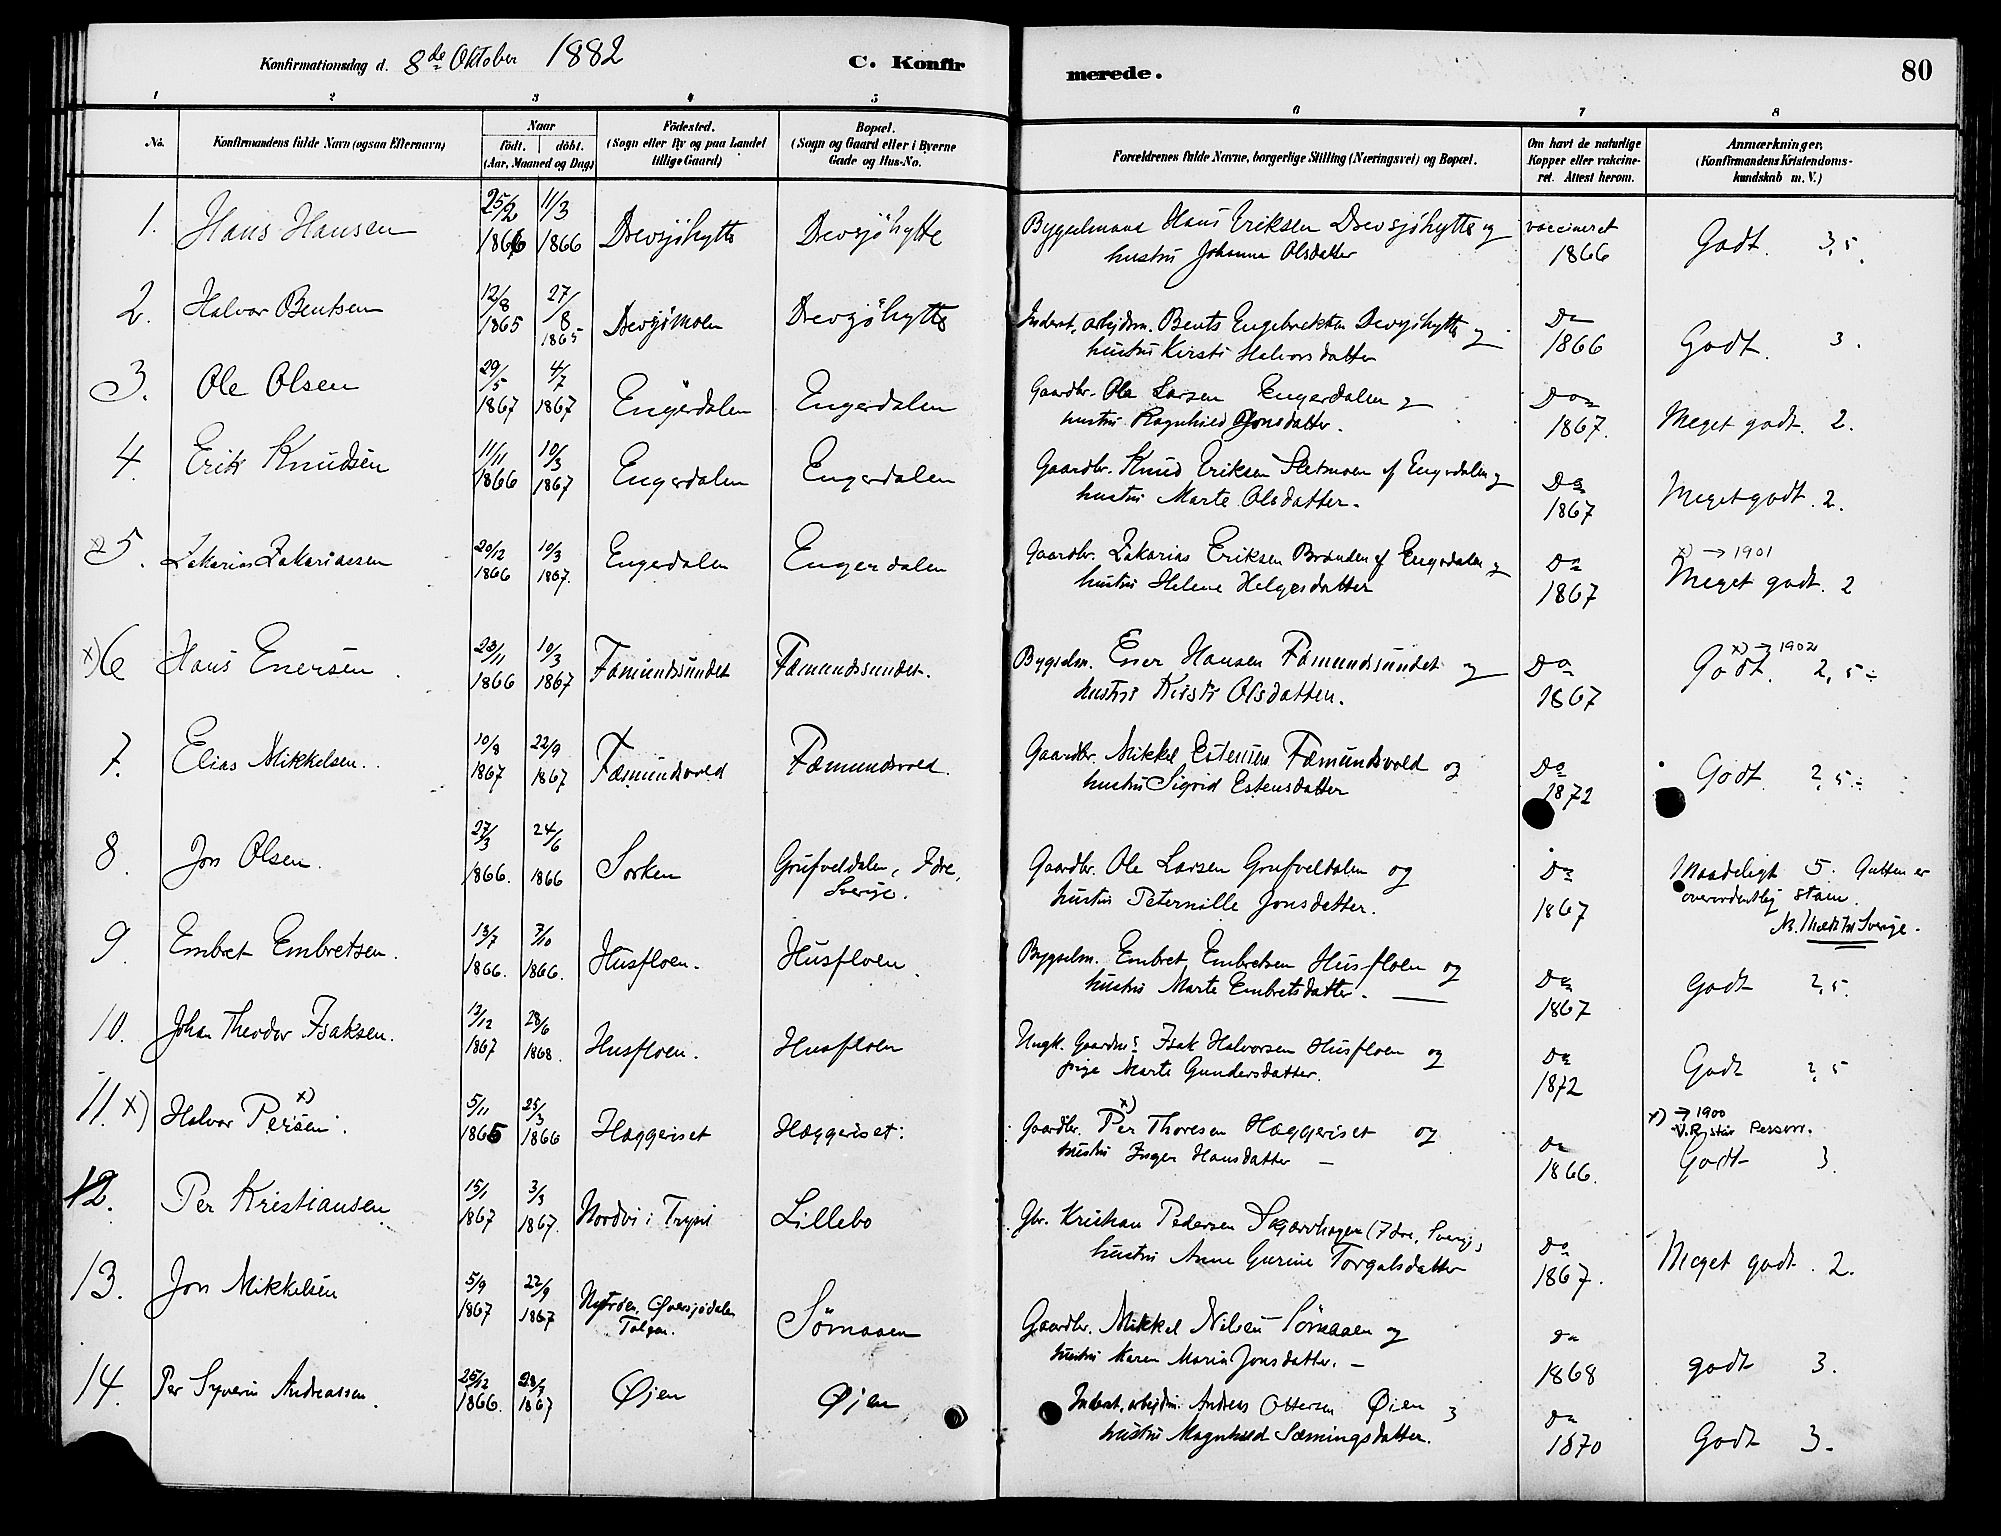 Konfirmationsdag d. 8de Oktober 1882
C. Konfirmerede.
80
1 2 3 4 5 6 7 8
No.
Konfirmandens fulde Navn (ogsaa Efternavn)
Naar
födt. döbt.
(Aar, Maaned og Dag)
Födested.
(Sogn eller By og paa Landet
tillige Gaard)
Bopæl.
(Sogn og Gaard eller i Byerne
Gade og Hus-No.
Forældrenes fulde Navne, borgerlige Stilling (Næringsvei) og Bopæl.
Om havt de naturlige
Kopper eller vakcine-
ret. Attest herom.
Anmærkninger.
(Konfirmandens Kristendoms-
kundskab m. V.)
1. Hans Hansen 25/2 1866 11/3 1866 Drevsjöhytte Drevsjöhytte Bygselmand Hans Eriksen Drevsjöhytte og vaccineret Godt. 3,5.
hustru Johanne Olsdatter 1866
2. Halvor Bentsen 12/8 1865 27/8 1865 Drevsjömoen Drevsjöhytte Inderst, arbejdsm. Bents Engebretsen Drevsjöhytte og Do Godt. 3.
hustru Kirsti Halvorsdatter 1866
3. Ole Olsen 29/5 1867 4/7 1867 Engerdalen Engerdalen Gaardbr. Ole Larsen Engerdalen og Do Meget godt. 2.
hustru Ragnhild Jonsdatter. 1867.
4. Erik Knudsen 11/11 1866 10/3 1867 Engerdalen Engerdalen Gaardbr. Knud Eriksen Sletmoen af Engerdalen og Do Meget godt. 2.
hustru Marte Olsdatter. 1867
x) 5. Zakarias Zakariassen 20/12 1866 10/3 1867. Engerdalen Engerdalen Gaardbr. Zakarias Eriksen Brænden af Engerdalen og Do x) → 1901
hustru Helene Helgesdatter 1867 Meget godt. 2
x) 6 Hans Enersen. 23/11 1866 10/3 1867 Fæmundssundet Fæmundssundet. Bygselm. Ener Hansen Fæmundssundet og Do x) → 1902
hustru Kirsti Olsdatter. 1867 Godt. 2,5 ÷
7. Elias Mikkelsen. 10/8 1867 22/9 1867 Fæmundsvold Fæmundsvold. Gaardbr. Mikkel Estensen Fæmundsvold og Do Godt 2,5 ÷
hustru Sigrid Estensdatter 1872
8. Jon Olsen. 27/3 1866. 24/6 1866 Sorken Grufveldalen, Idre, Gaardbr. Ole Larsen Grufveldalen og Do Maadeligt 5. Gutten er
Sverige. hustru Peternille Jonsdatter. 1867 overordentlig stam.
Sverige.
9. Embret Embretsen. 13/7 1866. 7/10 1866. Husfloen. Husfloen. Bygselm. Embret Embretsen Husfloen og Do Godt 2,5.
hustru Marte Embretsdatter. — 1867
10. Johan Theodor Isaksen. 13/12 1867 28/6 1868. Husfloen. Husfloen Ungk. Gaardms Isak Halvorsen Husfloen og Do Godt 2,5
pige Marte Gundersdatter. 1872
11. x) Halvor Persen x). 5/11 1865 25/3 1866 Hæggeriset Hæggeriset. Gaardbr. Per x) Thoresen Hæggeriset og Do x) → 1900
Person.
hustru Inger Hansdatter — 1866. Godt 3.
12. Per Kristiansen 15/1 1867 3/3 1867. Nordvi i Trysil Lillebo Gbr. Kristian Pedersen Skjærvhagen (Idre, Sverige, Do Meget godt. 2.
hustru Anne Gurine Torgalsdatter 1867.
13. Jon Mikkelsen 5/9 1867 22/9 1867 Nytröen, Øversjødalen Sömaaen Gaardbr. Mikkel Nilsen Sömaaen og Do godt 3.
Tolgen. hustru Karen Maria Jonsdatter. — 1868
14. Per Syverin Andreassen. 25/12 1866. 1867 Øien Øien Inderst, arbejdm. Andreas Ottersen Øien og Do Godt 3.
hustru Magnhild Sæmingsdatter. 1870